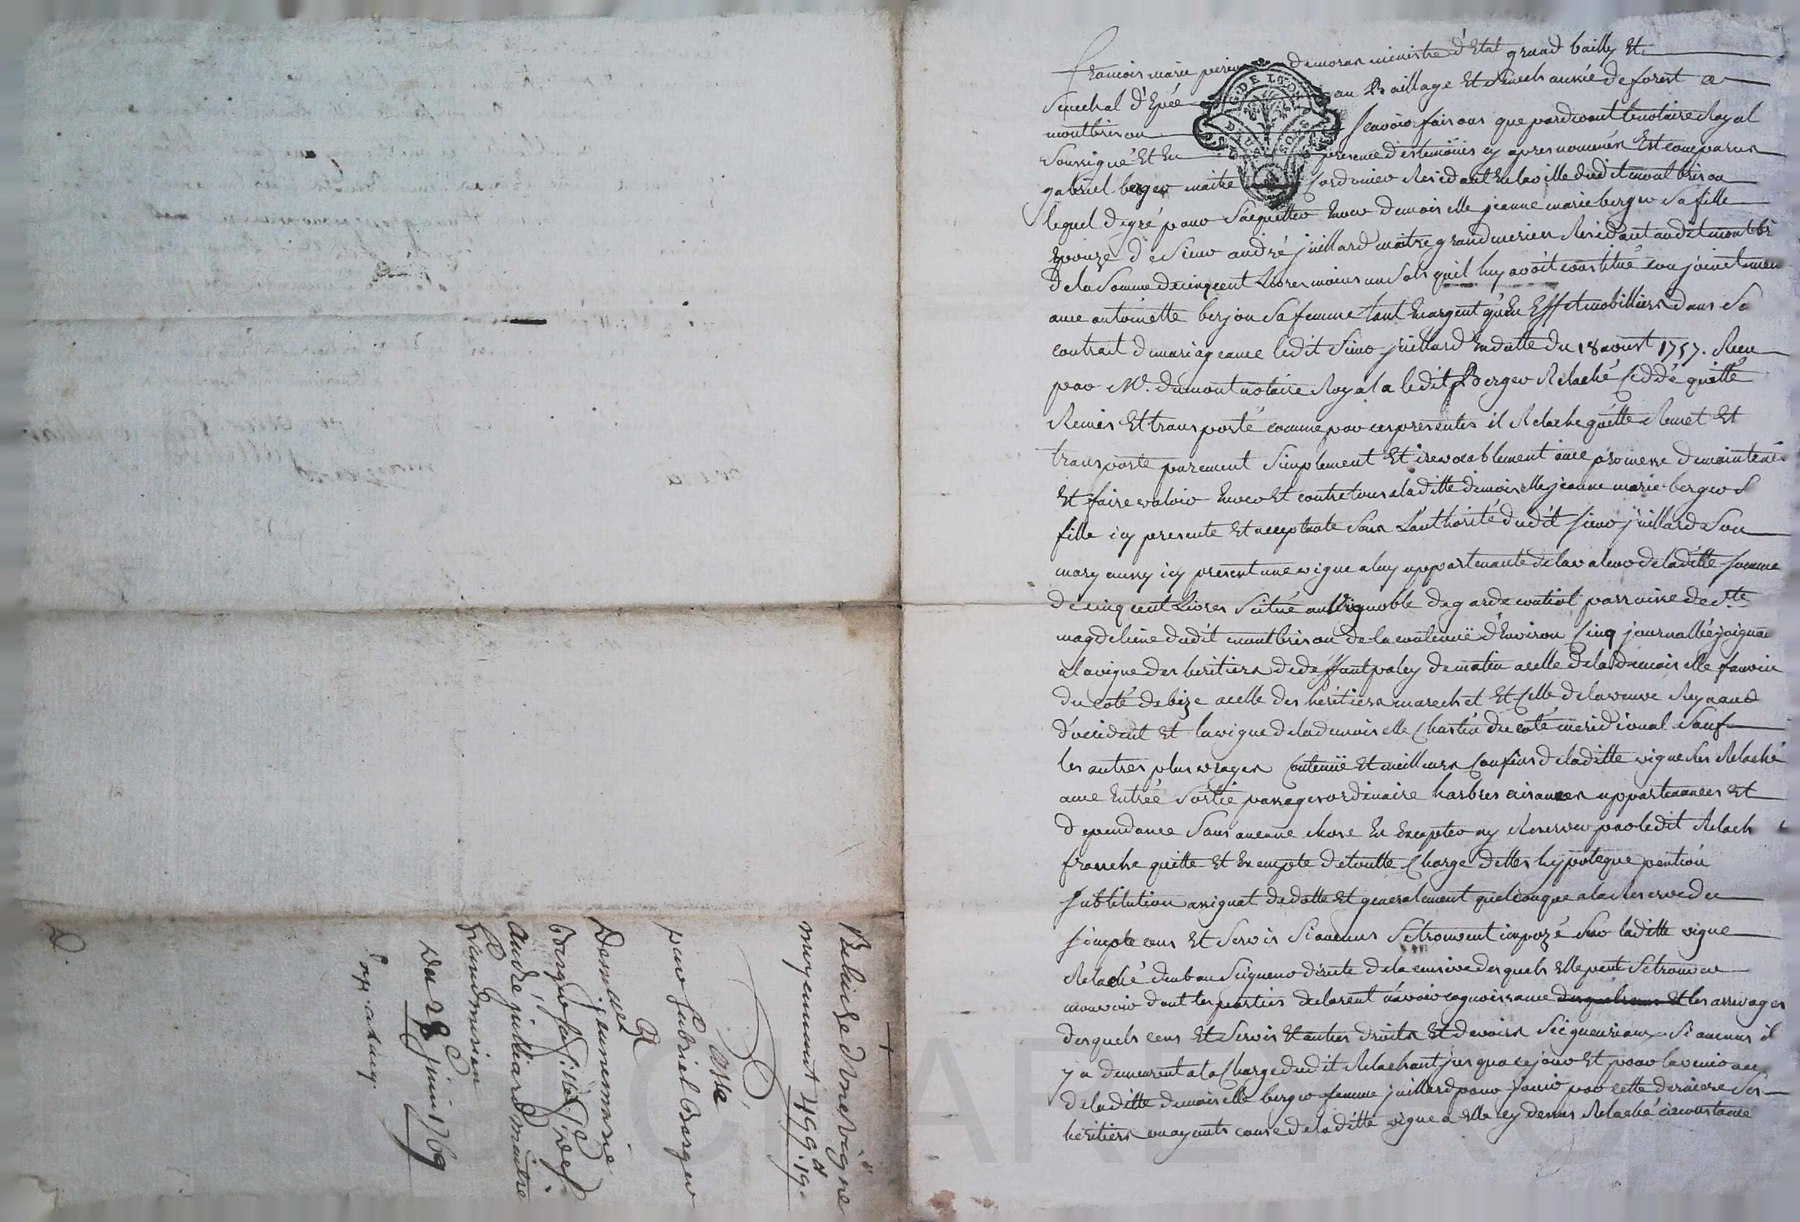 François marie perin de moras ministre d'Etat grand bailly Et
Senechal d'Epée au Baillage Et Senechaussée de forest a
montbrison Scavoir faisons que pardevant le notaire Royal
Soussigné Et En presence des temoins cy apres nommés Est comparu
gabriel berger maitre Cordonier Residant En la ville dudit montbrison
lequel de gré pour S'acquitter Envers demoiselle jeanne marie berger Sa fille
Epouze de Sieur andré juillard maitre grand mercier Residant audit montbri
de la Somme de cinq cent Livres moins un Sols qu'il luy avoit constitué conjointemen
avec antoinette berjon Sa femme tant En argent qu'En Effet mobilliers dans So
contrait de mariage avec ledit Sieur juillard En datte du 18 aoust 1757. Receu
par Mr. dumont notaire Royal a ledit Berger Relaché Ceddé quitté
Remis Et transporté comme par ces presentes il Relache quitte Remet Et
transporte purement Simplement Et irevocablement avec promesse de maintenir
Et faire valoir Envers Et contre tous a laditte demoiselle jeanne marie berger S
fille icy presente Et acceptante Sous L'authorité dudit Sieur juillard Son
mary aussy icy present une vigne a luy appartenante de la valeur de laditte Somme
de cinq cent Livres Scitué au Vignoble de garde parroisse de Ste
magdeleine dudit montbrison de la contenuë d'Environ Cinq journallée joignan
a la vigne des heritiers de deffunt paley de matin a celle de la demoiselle
du coté de bize a celle des héritiers marechet Et Celle de la veuve Reynaud
d'occident Et la vigne de la demoiselle Chastin du coté meridional Sauf
les autres plus vrayes Contenüe Et meilleurs Confins de laditte vigne Relaché
avec Entrée Sortie passages ordinaire harbres aisances appartenances Et
dépendance Sans aucune chose En Excepter ny Reserver par ledit Relach
franche quitte Et Exempte de toutte Charge dettes hypoteque pention
Substitution assignat de dotte Et generalement quelconque a la Reserve de
Simple cens Et Servis Si aucuns Se trouvent impozé Sur laditte vigne
Relaché du bau Seigneur directe de la censive desquels Elle peut Se trouver
mouvoir dont les parties declarent n'avoir cognoissance Et les arrerages
desquels cens Et Servis Et autres droits Et devoirs Seigneuriaux Si aucuns il
y a demeurent a la Charge dudit Relachant jusqua ce jour Et pour l'avenir a
de laditte demoiselle berger femme juillard pour jouir par cette derniere Ses
heritiers ou ayants cause de laditte vigne a Elle cy dessus Relaché circonstance
Relaiche d'une vigne
moyennant 499 lt. 19 s
Passé
par Gabriel Berger
A
Demlle jeanne marie
berger Sa fille & Sr
André juilliard maitre
Grandmercier
Du 28 juin 1769